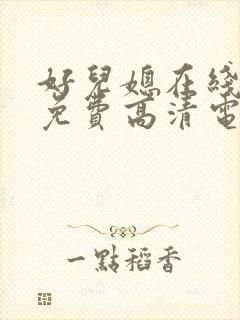 好兒媳在綫
免費高清電
一點稻香